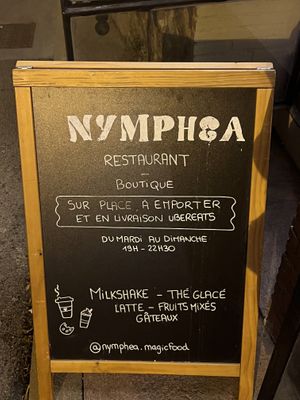 NYMPHEA
RESTAURANT
-
BOUTIQUE
SUR PLACE, A EMPORTER
ET EN LIVRAISON UBEREATS
DU MARDI AU DIMANCHE
19H - 22H30
MILKSHAKE - THÉ GLACÉ
LATTE - FRUITS MIXÉS
GÂTEAUX
@nymphea.magicfood